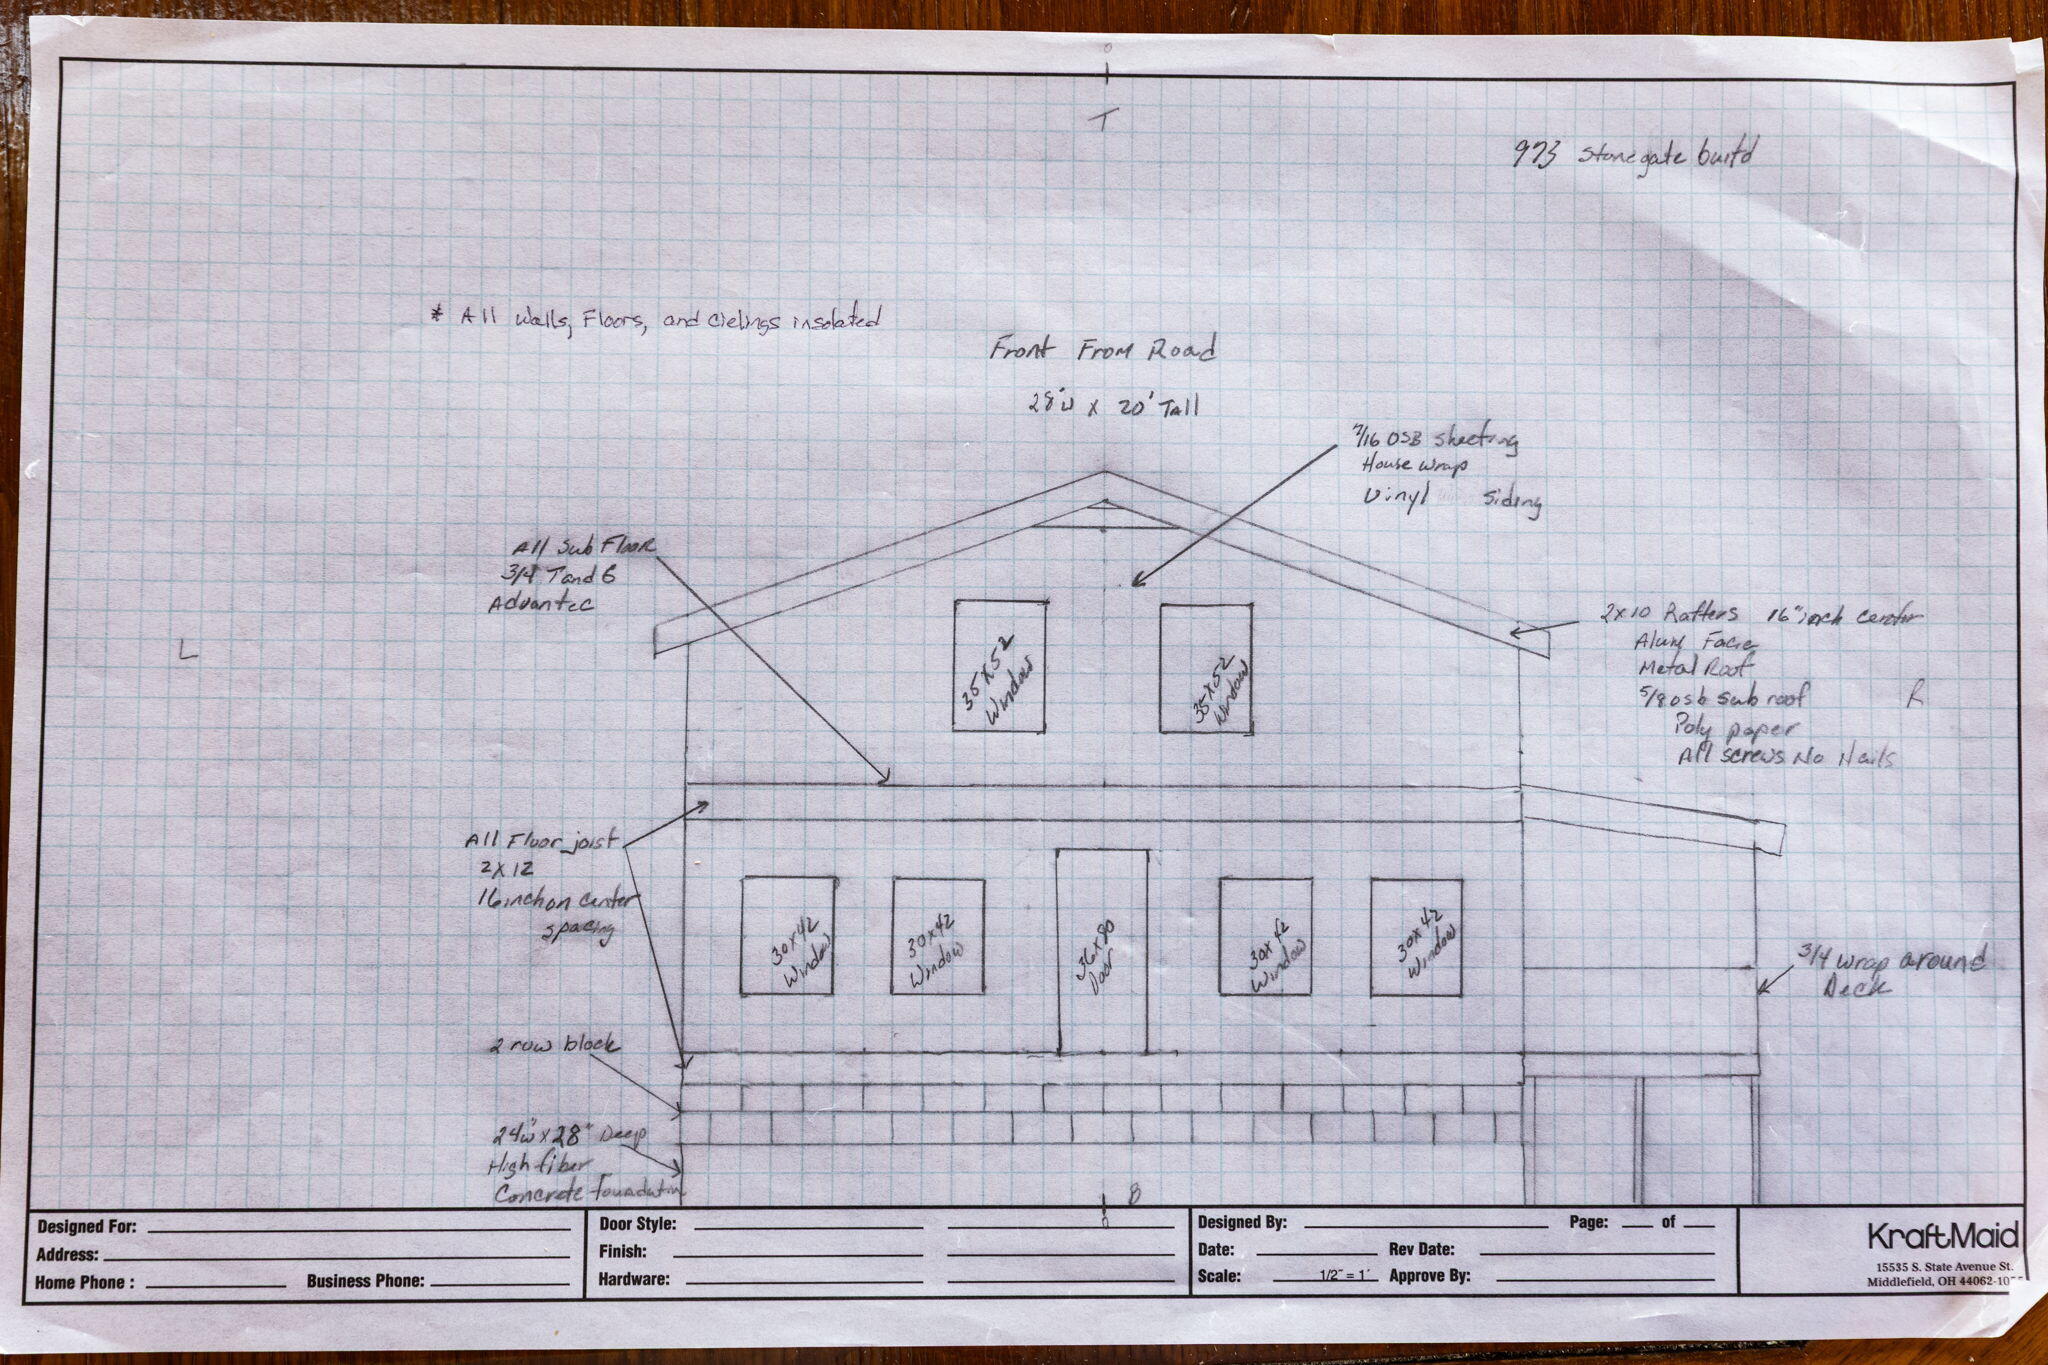 T
973 Stonegate build
* All Walls, Floors, and cielings insolated
Front From Road
28'w x 20' Tall
7/16 OSB sheeting
House wrap
Vinyl siding
All Sub Floor
3/4 T and G
Advantec
35x52
Window
35x52
Window
2x10 Rafters 16" inch center
Alum Facie
Metal Roof
5/8 osb sub roof
Poly paper
All screws No Nails
L
R
All Floor joist
2x12
16 inch on center
spacing
30x42
Window
30x42
Window
36x80
Door
30x42
Window
30x42
Window
3/4 wrap around
Deck
2 row block
24"w x 28" Deep
High fiber
Concrete foundation
B
Designed For:
Address:
Home Phone : Business Phone:
Door Style:
Finish:
Hardware:
Designed By: Page: of
Date: Rev Date:
Scale: 1/2" = 1' Approve By:
KraftMaid
15535 S. State Avenue St.
Middlefield, OH 44062-10